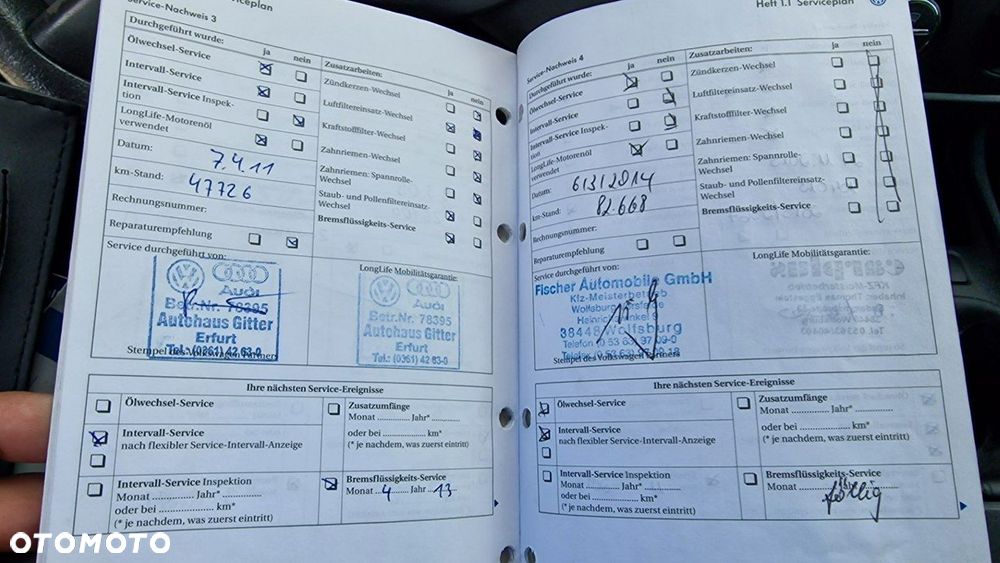 Service-Nachweis 3
Serviceplan
Durchgeführt wurde: ja nein
Ölwechsel-Service
Intervall-Service
Intervall-Service Inspek-
tion
LongLife-Motorenöl
verwendet
Datum: 7.4.11
km-Stand: 47726
Rechnungsnummer:
Reparaturempfehlung
Service durchgeführt von:
Zusatzarbeiten: ja nein
Zündkerzen-Wechsel
Luftfiltereinsatz-Wechsel
Kraftstofffilter-Wechsel
Zahnriemen-Wechsel
Zahnriemen: Spannrolle-
Wechsel
Staub- und Pollenfiltereinsatz-
Wechsel
Bremsflüssigkeits-Service
LongLife Mobilitätsgarantie:
Audi
Betr.Nr. 78395
Autohaus Gitter
Erfurt
Tel.: (0361) 42 63-0
Stempel des Volkswagen Partners
Audi
Betr.Nr. 78395
Autohaus Gitter
Erfurt
Tel.: (0361) 42 63-0
Ihre nächsten Service-Ereignisse
Ölwechsel-Service
Intervall-Service
nach flexibler Service-Intervall-Anzeige
Intervall-Service Inspektion
Monat ............... Jahr* ...............
oder bei ............... km*
(* je nachdem, was zuerst eintritt)
Zusatzumfänge
Monat ............ Jahr* ............
oder bei ............ km*
(* je nachdem, was zuerst eintritt)
Bremsflüssigkeits-Service
Monat 4 Jahr 13
Heft 1.1 Serviceplan
Service-Nachweis 4
Durchgeführt wurde: ja nein
Ölwechsel-Service
Intervall-Service
Intervall-Service Inspek-
tion
LongLife-Motorenöl
verwendet
Datum: 61312014
km-Stand: 82.668
Rechnungsnummer:
Reparaturempfehlung
Service durchgeführt von:
Zusatzarbeiten: ja nein
Zündkerzen-Wechsel
Luftfiltereinsatz-Wechsel
Kraftstofffilter-Wechsel
Zahnriemen-Wechsel
Zahnriemen: Spannrolle-
Wechsel
Staub- und Pollenfiltereinsatz-
Wechsel
Bremsflüssigkeits-Service
LongLife Mobilitätsgarantie:
Fischer Automobile GmbH
Kfz-Meisterbetrieb
38448 Wolfsburg
Stempel des Volkswagen Partners
Ihre nächsten Service-Ereignisse
Ölwechsel-Service
Intervall-Service
nach flexibler Service-Intervall-Anzeige
Intervall-Service Inspektion
Monat ............... Jahr* ...............
oder bei ............... km*
(* je nachdem, was zuerst eintritt)
Zusatzumfänge
Monat ............ Jahr* ............
oder bei ............ km*
(* je nachdem, was zuerst eintritt)
Bremsflüssigkeits-Service
Monat
OTOMOTO